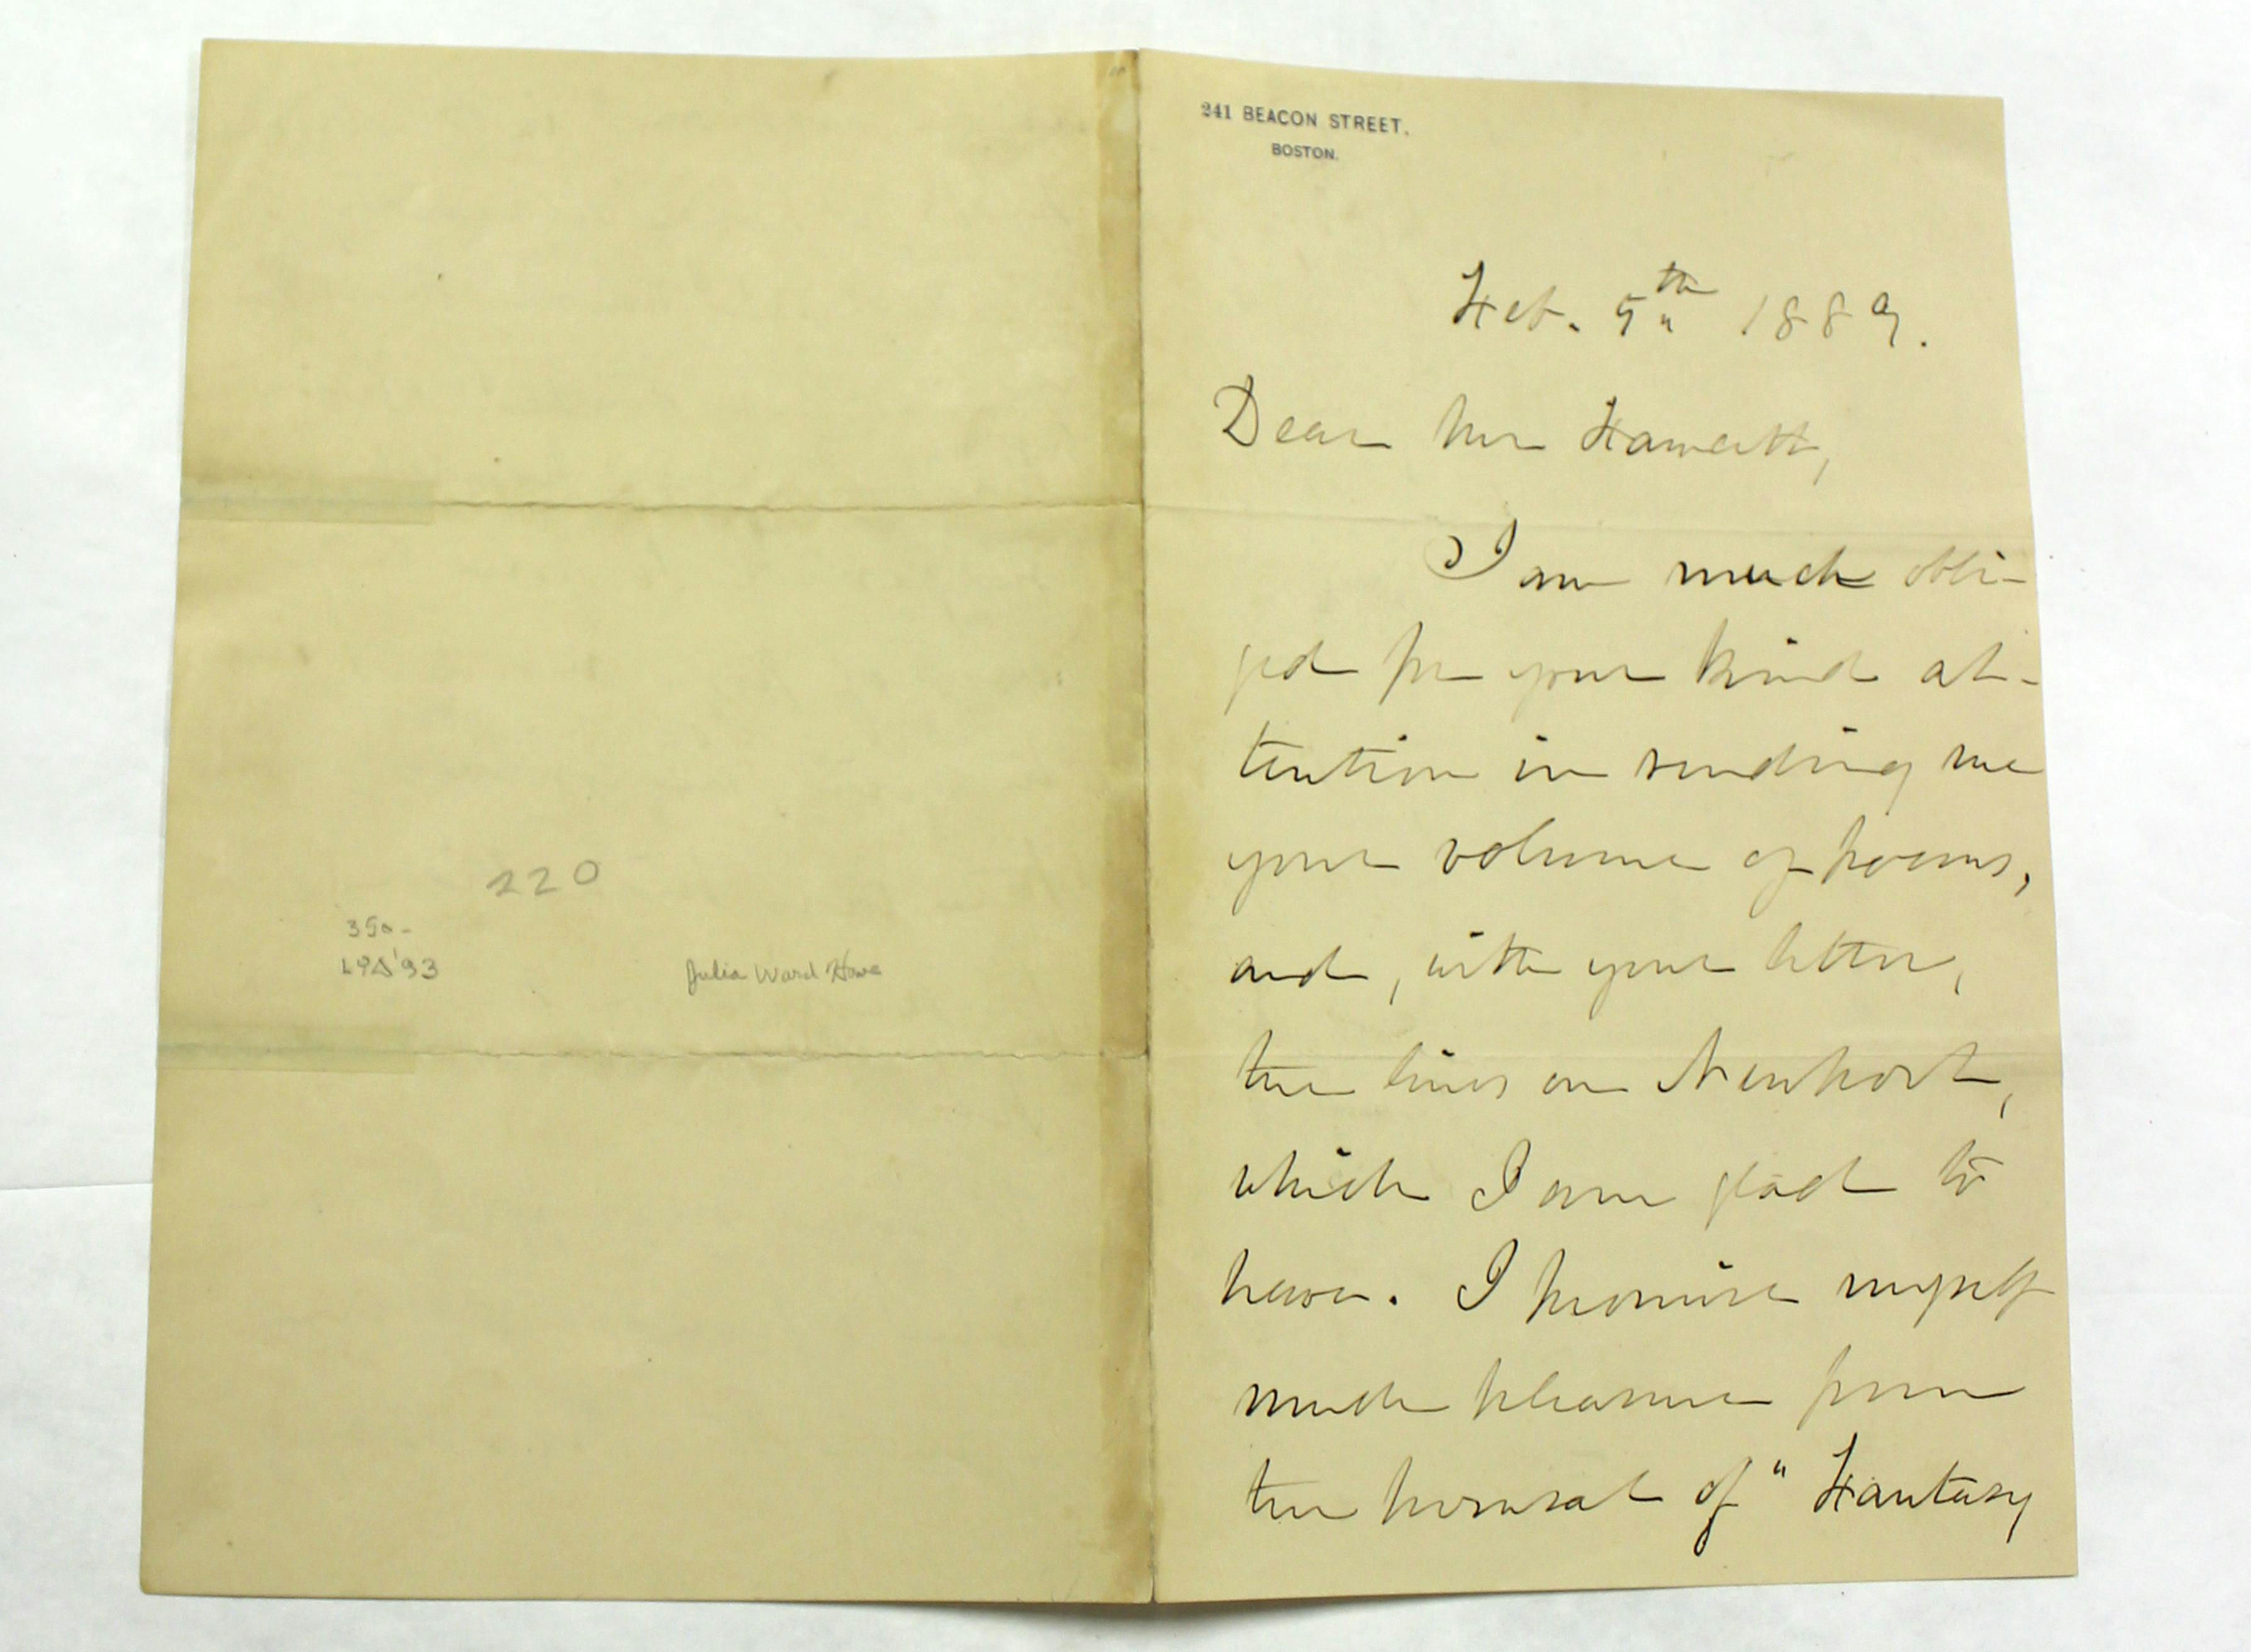 220
350-
L9A'93
Julia Ward Howe
241 BEACON STREET.
BOSTON.
Feb. 5th 1889.
Dear Mr Fawcett,
I am much obli-
ged for your kind at-
tention in sending me
your volume of poems,
and, with your letter,
the lines on Newport,
which I am glad to
have. I promise myself
much pleasure from
the perusal of "Fantasy